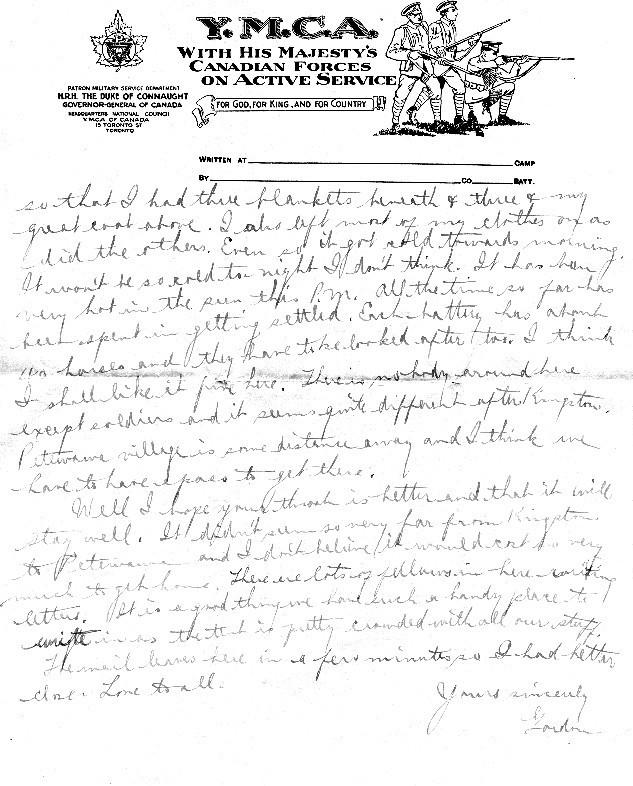 Y.M.C.A.
WITH HIS MAJESTY'S
CANADIAN FORCES
ON ACTIVE SERVICE
FOR GOD, FOR KING, AND FOR COUNTRY
PATRON MILITARY SERVICE DEPARTMENT
H.R.H. THE DUKE OF CONNAUGHT
GOVERNOR-GENERAL OF CANADA
HEADQUARTERS NATIONAL COUNCIL
Y.M.C.A. OF CANADA
15 TORONTO ST
TORONTO
WRITTEN AT CAMP
BY CO. BATT.
so that I had three blankets beneath & three & my
great coat above. I also left most of my clothes on as
did the others. Even so it got cold towards morning.
It won't be so cold to-night I don't think. It has been
very hot in the sun this P.M. All the time so far has
been spent in getting settled. Each battery has about
horses and they have to be looked after too. I think
I shall like it fine here. There is nobody around here
except soldiers and it seems quite different after Kingston.
Petewawa village is some distance away and I think we
have to have a pass to get there.
Well I hope your throat is better and that it will
stay well. It didn't seem so very far from Kingston
to Petewawa and I don't believe it would cost so very
much to get home. There are lots of fellows in here writing
letters. It is a good thing we have such a handy place to
write in as the tent is pretty crowded with all our stuff.
The mail leaves here in a few minutes so I had better
close. Love to all.
Yours sincerely
Gordon